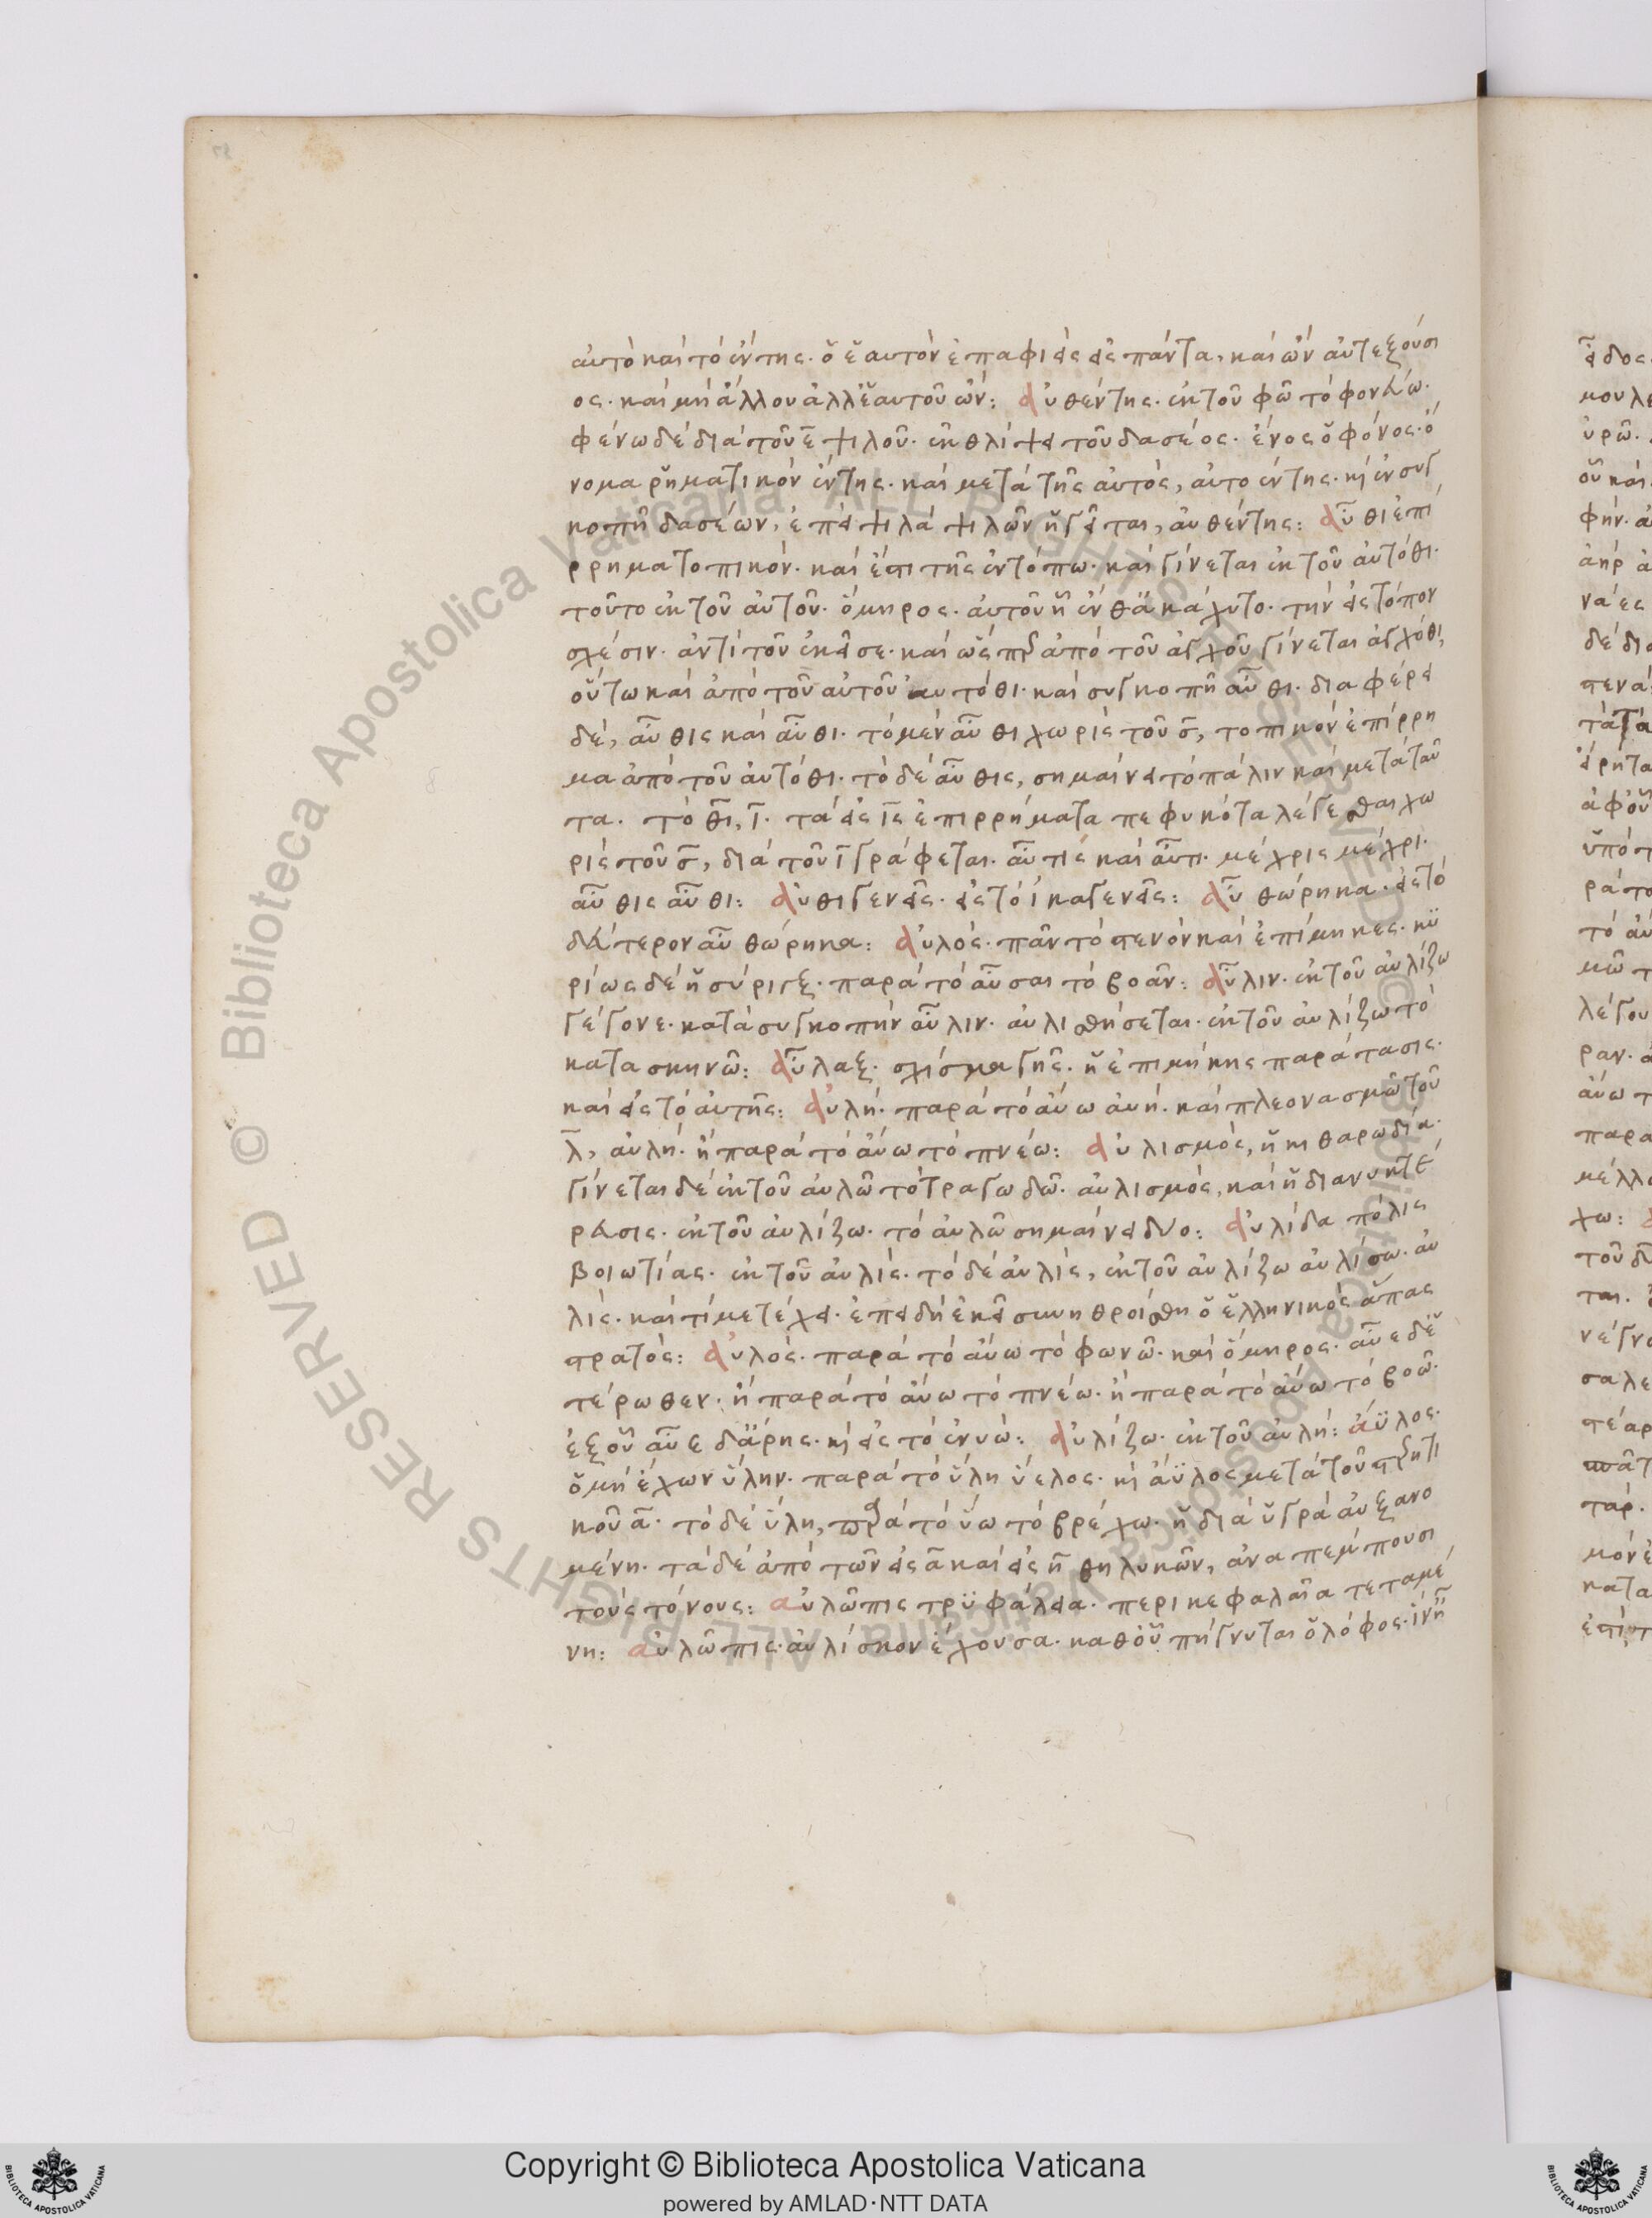 αὐτὸ καὶ τὸ ἕντης. ὁ ἑαυτὸν ἐπαφιεὶς εἰς πάντα, καὶ ὢν αὐτεξούσι
ος. καὶ μὴ ἄλλου ἀλλ' ἑαυτοῦ ὤν: αὐθέντης. ἐκ τοῦ φῶ τὸ φονεύω.
φένω δὲ διὰ τοῦ ε ψιλοῦ. ἐκθλίψει τοῦ δασέος. ἕνος ὁ φόνος. ὄ
νομα ῥηματικὸν ἕντης. καὶ μετὰ τῆς αὐτός, αὐτοέντης. κὶ ἐν συγ
κοπῆ δασέων, ἐπεὶ ψιλὰ ψιλῶν ἡγεῖται, αὐθέντης: αὖθι ἐπί
ρρημα τοπικόν. καὶ ἔστι τῆς ἐν τόπω. καὶ γίνεται ἐκ τοῦ αὐτόθι.
τοῦτο ἐκ τοῦ αὐτοῦ. ὅμηρος. αὐτοῦ ἧ ἔνθα κάχυτο. τὴν εἰς τόπον
σχέσιν. ἀντὶ τοῦ ἐκεῖσε. καὶ ὥσπερ ἀπὸ τοῦ ἀγχοῦ γίνεται ἀγχόθι,
οὕτω καὶ ἀπὸ τοῦ αὐτοῦ αὐτόθι. καὶ συγκοπῆ αὖθι. διαφέρει
δέ, αὖθις καὶ αὖθι. τὸ μὲν αὖθι χωρὶς τοῦ σ, τοπικὸν ἐπίρρη
μα ἀπὸ τοῦ αὐτόθι. τὸ δὲ αὖθις, σημαίνει τὸ πάλιν καὶ μετὰ ταῦ
τα. τὸ θι, ι. τὰ εἰς ις ἐπιρρήματα πεφυκότα λέγεσθαι χω
ρὶς τοῦ σ, διὰ τοῦ ι γράφεται. αὖτις καὶ αὖτι. μέχρις μέχρι.
αὖθις αὖθι: αὐθιγενεῖς. εἰς τὸ ἰκαγενεῖς: αὖ θώρηκα. εἰς τὸ
δεύτερον αὖ θώρηκα: αὐλός. πᾶν τὸ στενὸν καὶ ἐπίμηκες. κυ
ρίως δὲ ἡ σύριγξ. παρὰ τὸ αὖσαι τὸ βοᾶν: αὖλιν. ἐκ τοῦ αὐλίζω
γέγονε. κατὰ συγκοπὴν αὖλιν. αὐλισθήσεται. ἐκ τοῦ αὐλίζω τὸ
κατασκηνῶ: αὖλαξ. σχίσμα γῆς. ἡ ἐπιμήκης παράτασις.
καὶ εἰς τὸ αὐτῆς: αὐλή. παρὰ τὸ αὔω αὐή. καὶ πλεονασμῶ τοῦ
λ, αὐλή. ἢ παρὰ τὸ αὔω τὸ πνέω: αὐλισμός, ἡ κιθαρωδία.
γίνεται δὲ ἐκ τοῦ αὐλῶ τὸ τραγωδῶ. αὐλισμός, καὶ ἡ διανυκτέ
ρευσις. ἐκ τοῦ αὐλίζω. τὸ αὐλῶ σημαίνει δύο: αὐλίδα πόλις
βοιωτίας. ἐκ τοῦ αὐλίς. τὸ δὲ αὐλίς, ἐκ τοῦ αὐλίζω αὐλίσω. αὐ
λίς. καὶ τί μετέχει. ἐπειδὴ ἐκεῖ συνηθροίσθη ὁ ἑλληνικὸς ἅπας
στρατός: αὐλός. παρὰ τὸ αὔω τὸ φωνῶ. καὶ ὅμηρος. αὖε δ' ἑ
τέρωθεν. ἢ παρὰ τὸ αὔω τὸ πνέω. ἢ παρὰ τὸ αὔω τὸ βοῶ.
ἐξ οὗ αὖε δ' ἄρης. κὶ εἰς τὸ ἐνυώ: αὐλίζω. ἐκ τοῦ αὐλή: ἄϋλος.
ὁ μὴ ἔχων ὕλην. παρὰ τὸ ὕλη ὕελος. κὶ ἄϋλος μετὰ τοῦ στερητι
κοῦ α. τὸ δὲ ὕλη, παρὰ τὸ ὕω τὸ βρέχω. ἡ διὰ ὑγρὰ αὐξανο
μένη. τὰ δὲ ἀπὸ τῶν εἰς α καὶ εἰς η θηλυκῶν, ἀναπέμπουσι
τοὺς τόνους: αὐλῶπις τρυφάλεια. περικεφαλαῖα τεταμέ
νη: αὐλῶπις. αὐλίσκον ἔχουσα. καθ' οὗ πήγνυται ὁ λόφος. ἵν' ἦ